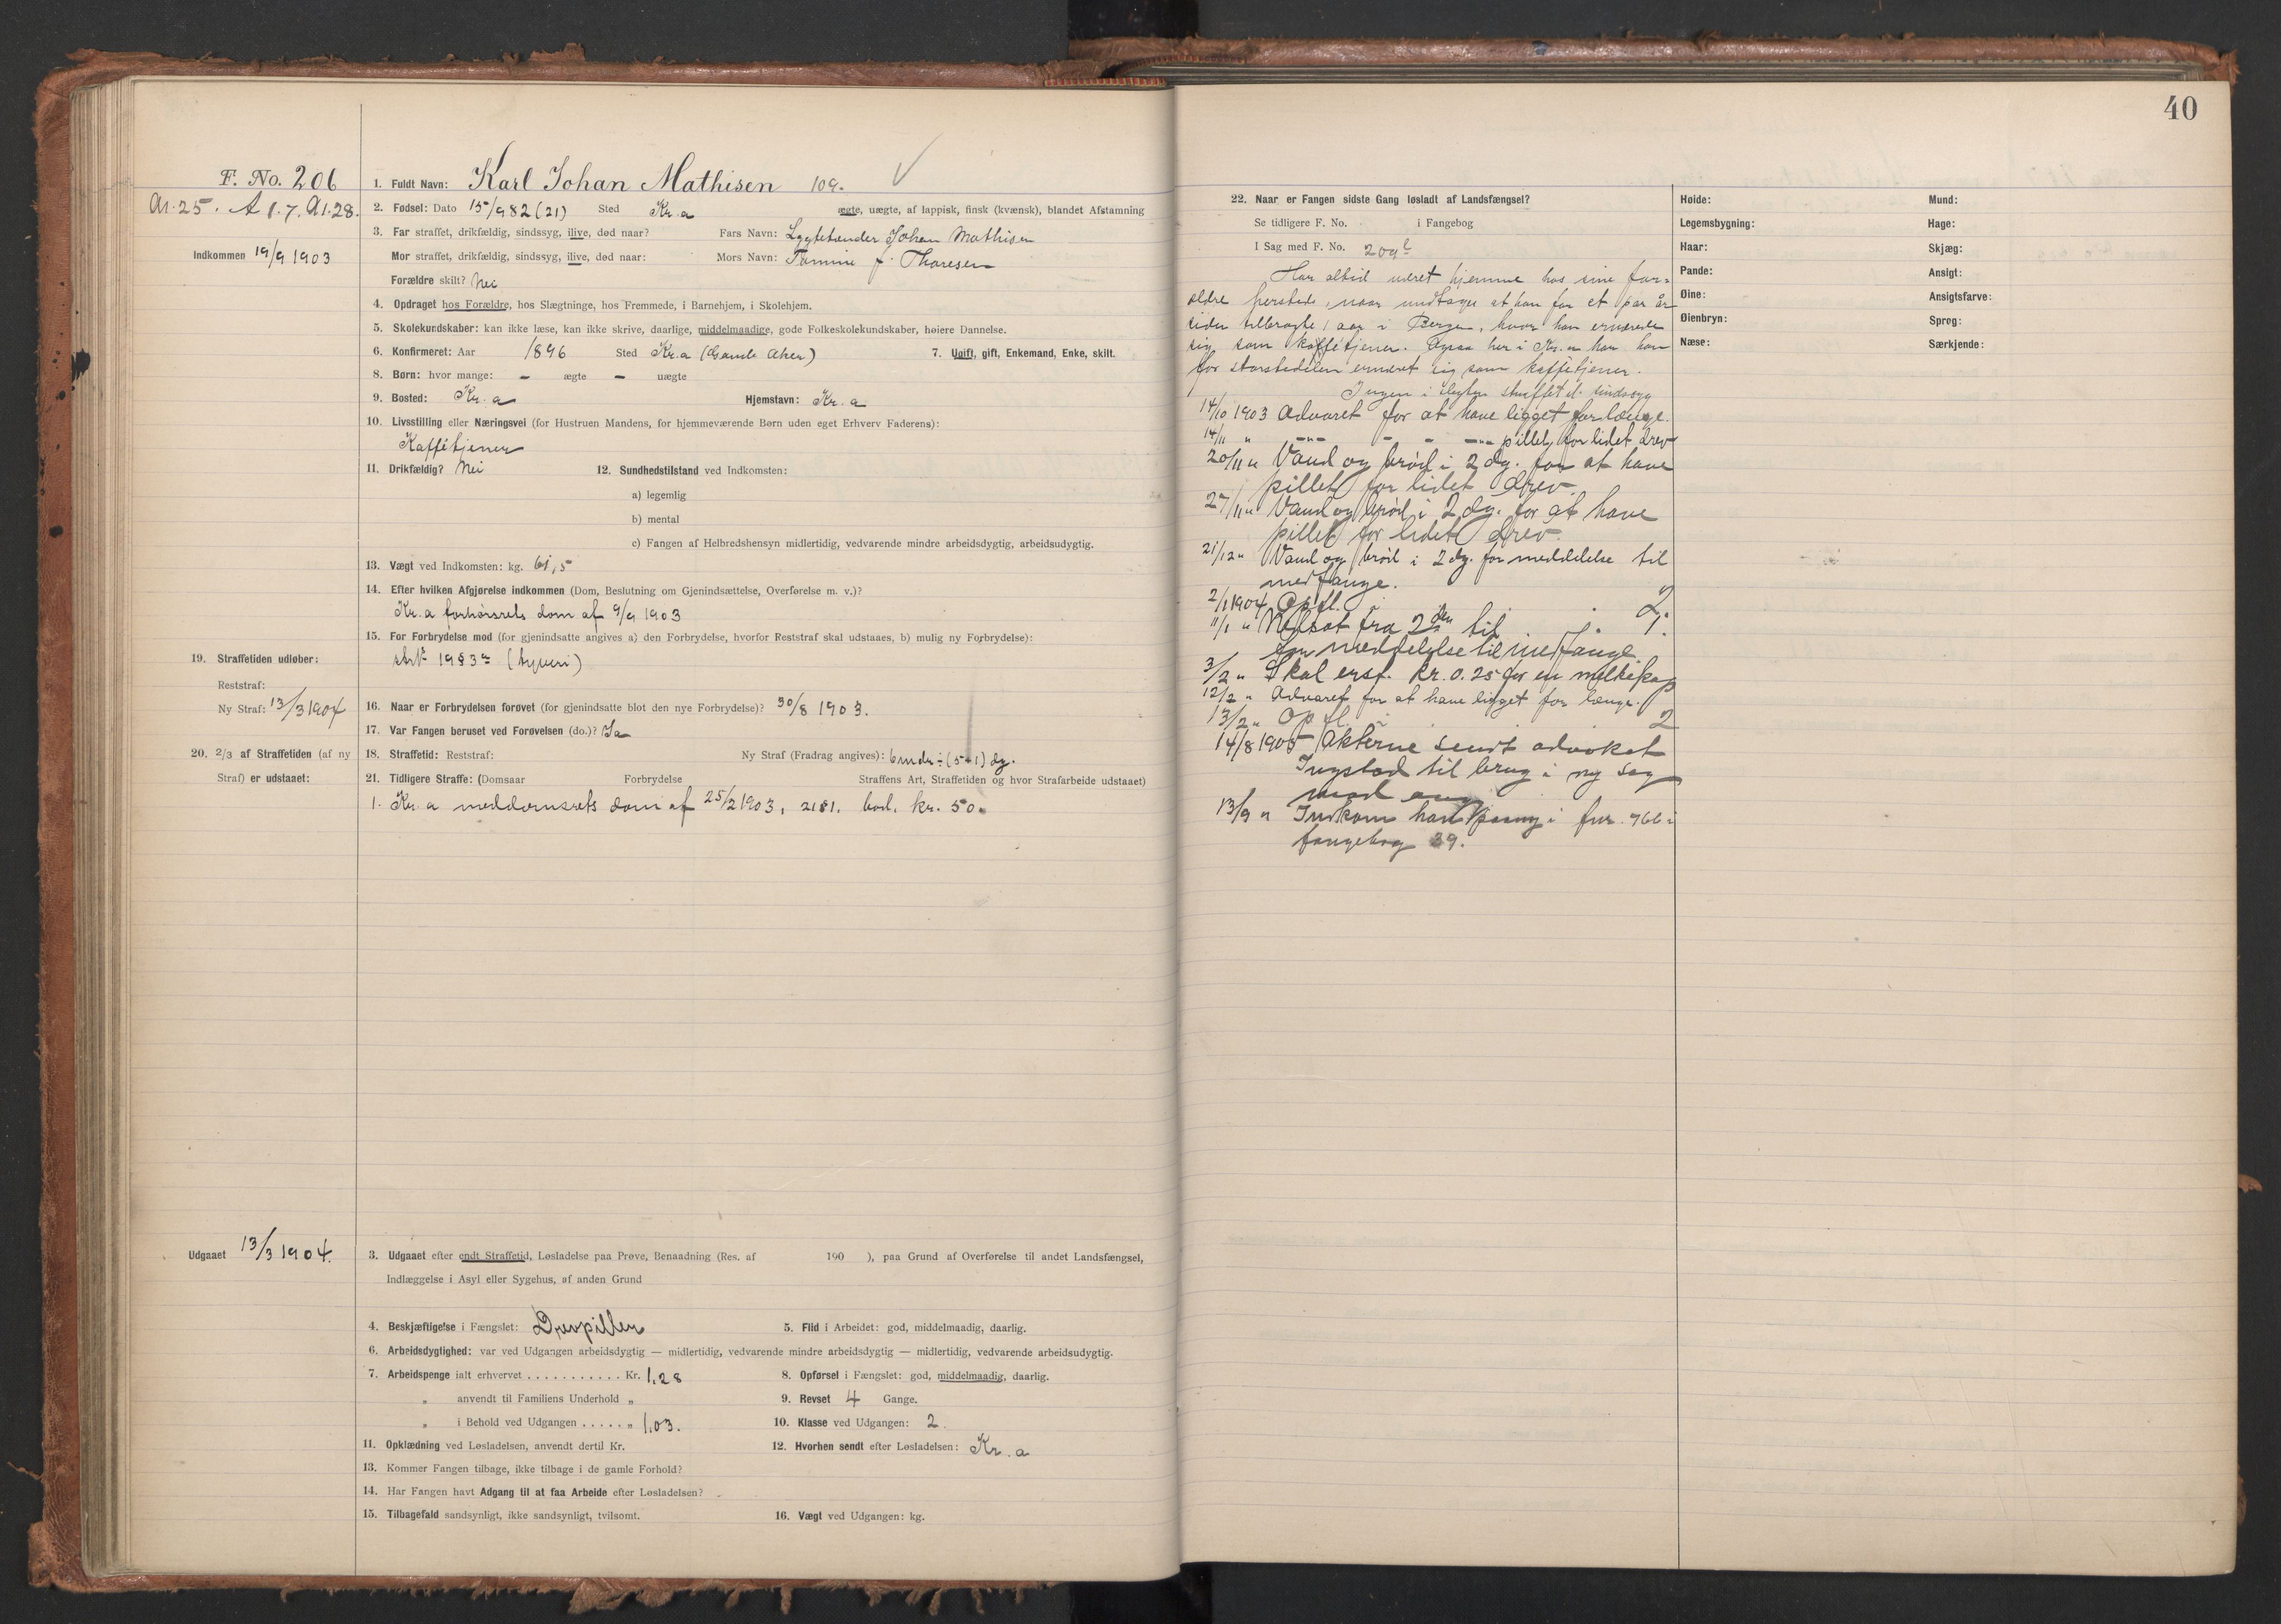 40
F. No. 206
1. Fuldt Navn: Karl Johan Mathisen 109.
A1.25. A 1.7. A1.28.
2. Fødsel: Dato 15/9 82 (21) Sted Kr.a ægte, uægte, af lappisk, finsk (kvænsk), blandet Afstamning
3. Far straffet, drikfældig, sindssyg, ilive, død naar? Fars Navn: Lygtetænder Johan Mathisen
Indkommen 19/9 1903
Mor straffet, drikfældig, sindssyg, ilive, død naar: Mors Navn: f. Thoresen
Forældre skilt? Nei
4. Opdraget hos Forældre, hos Slægtninge, hos Fremmede, i Barnehjem, i Skolehjem.
5. Skolekundskaber: kan ikke læse, kan ikke skrive, daarlige, middelmaadige, gode Folkeskolekundskaber, høiere Dannelse.
6. Konfirmeret: Aar 1896 Sted Kr.a (Gamle Aker) 7. Ugift, gift, Enkemand, Enke, skilt.
8. Børn: hvor mange: – ægte – uægte
9. Bosted: Kr.a Hjemstavn: Kr.a
10. Livsstilling eller Næringsvei (for Hustruen Mandens, for hjemmeværende Børn uden eget Erhverv Faderens):
Kaffétjener
11. Drikfældig? Nei 12. Sundhedstilstand ved Indkomsten:
a) legemlig
b) mental
c) Fangen af Helbredshensyn midlertidig, vedvarende mindre arbeidsdygtig, arbeidsudygtig.
13. Vægt ved Indkomsten: kg. 61,5
14. Efter hvilken Afgjørelse indkommen (Dom, Beslutning om Gjenindsættelse, Overførelse m. v.)?
Kr.a forhørsrets dom af 9/9 1903
15. For Forbrydelse mod (for gjenindsatte angives a) den Forbrydelse, hvorfor Reststraf skal udstaaes, b) mulig ny Forbrydelse):
19. Straffetiden udløber:
(tyveri)
Reststraf:
Ny Straf: 13/3 1904
16. Naar er Forbrydelsen forøvet (for gjenindsatte blot den nye Forbrydelse)? 30/8 1903.
17. Var Fangen beruset ved Forøvelsen (do.)? Ja
20. 2/3 af Straffetiden (af ny
18. Straffetid: Reststraf: Ny Straf (Fradrag angives): 6 mdr ÷ (5+1) dg.
Straf) er udstaaet:
21. Tidligere Straffe: (Domsaar Forbrydelse Straffens Art, Straffetiden og hvor Strafarbeide udstaaet)
1. Kr.a meddomsrets dom af 25/2 1903, bod. kr. 50.
Udgaaet 13/3 1904.
3. Udgaaet efter endt Straffetid, Løsladelse paa Prøve, Benaadning (Res. af 190 ), paa Grund af Overførelse til andet Landsfængsel,
Indlæggelse i Asyl eller Sygehus, af anden Grund
4. Beskjæftigelse i Fængslet: Drevpiller 5. Flid i Arbeidet: god, middelmaadig, daarlig.
6. Arbeidsdygtighed: var ved Udgangen arbeidsdygtig — midlertidig, vedvarende mindre arbeidsdygtig — midlertidig, vedvarende arbeidsudygtig.
7. Arbeidspenge ialt erhvervet . . . . . . . . . . . Kr. 1,28 8. Opførsel i Fængslet: god, middelmaadig, daarlig.
„ anvendt til Familiens Underhold „ 9. Revset 4 Gange.
„ i Behold ved Udgangen . . . . . „ 1,03. 10. Klasse ved Udgangen: 2.
11. Opklædning ved Løsladelsen, anvendt dertil Kr. 12. Hvorhen sendt efter Løsladelsen: Kr.a
13. Kommer Fangen tilbage, ikke tilbage i de gamle Forhold?
14. Har Fangen havt Adgang til at faa Arbeide efter Løsladelsen?
15. Tilbagefald sandsynligt, ikke sandsynligt, tvilsomt. 16. Vægt ved Udgangen: kg.
22. Naar er Fangen sidste Gang løsladt af Landsfængsel?
Se tidligere F. No. i Fangebog
I Sag med F. No.
Har altid været hjemme hos sine for=
ældre herstede, naar undtages at han for et par år
siden tilbragte 1 aar i Bergen, hvor han ernærede
sig som kaffétjener. Ogsaa her i Kr.a har han
for størstedelen ernæret sig som kaffétjener.
Ingen i slegten straffet el. sindssyg
14/10 1903 Advaret for at have ligget for længe.
14/11 „ –„– – – –„– pillet for lidet drev
20/11 „ Vand og brød i 2 dg. for at have
pillet for lidet drev.
27/11 „ Vand og brød i 2 dg. for at have
pillet for lidet drev.
21/12 „ Vand og brød i 2 dg. for meddelelse til
medfange.
2/1 1904 Opfl. i 2.
11/1 „ Nedsat fra 2den til 1.
for meddelelse til medfange.
3/2 „ Skal erst. kr. 0.25 for en melkekop
12/2 „ Advaret for at have ligget for længe.
13/2 „ Opfl. i 2
14/8 1905 Akterne sendt advokat
Ingstad til brug i ny sag
mod
13/9 „ Indkom han i fnr. 766 i
fangebog 39.
Høide: Mund:
Legemsbygning: Hage:
Haar: Skjæg:
Pande: Ansigt:
Øine: Ansigtsfarve:
Øienbryn: Sprog:
Næse: Særkjende: